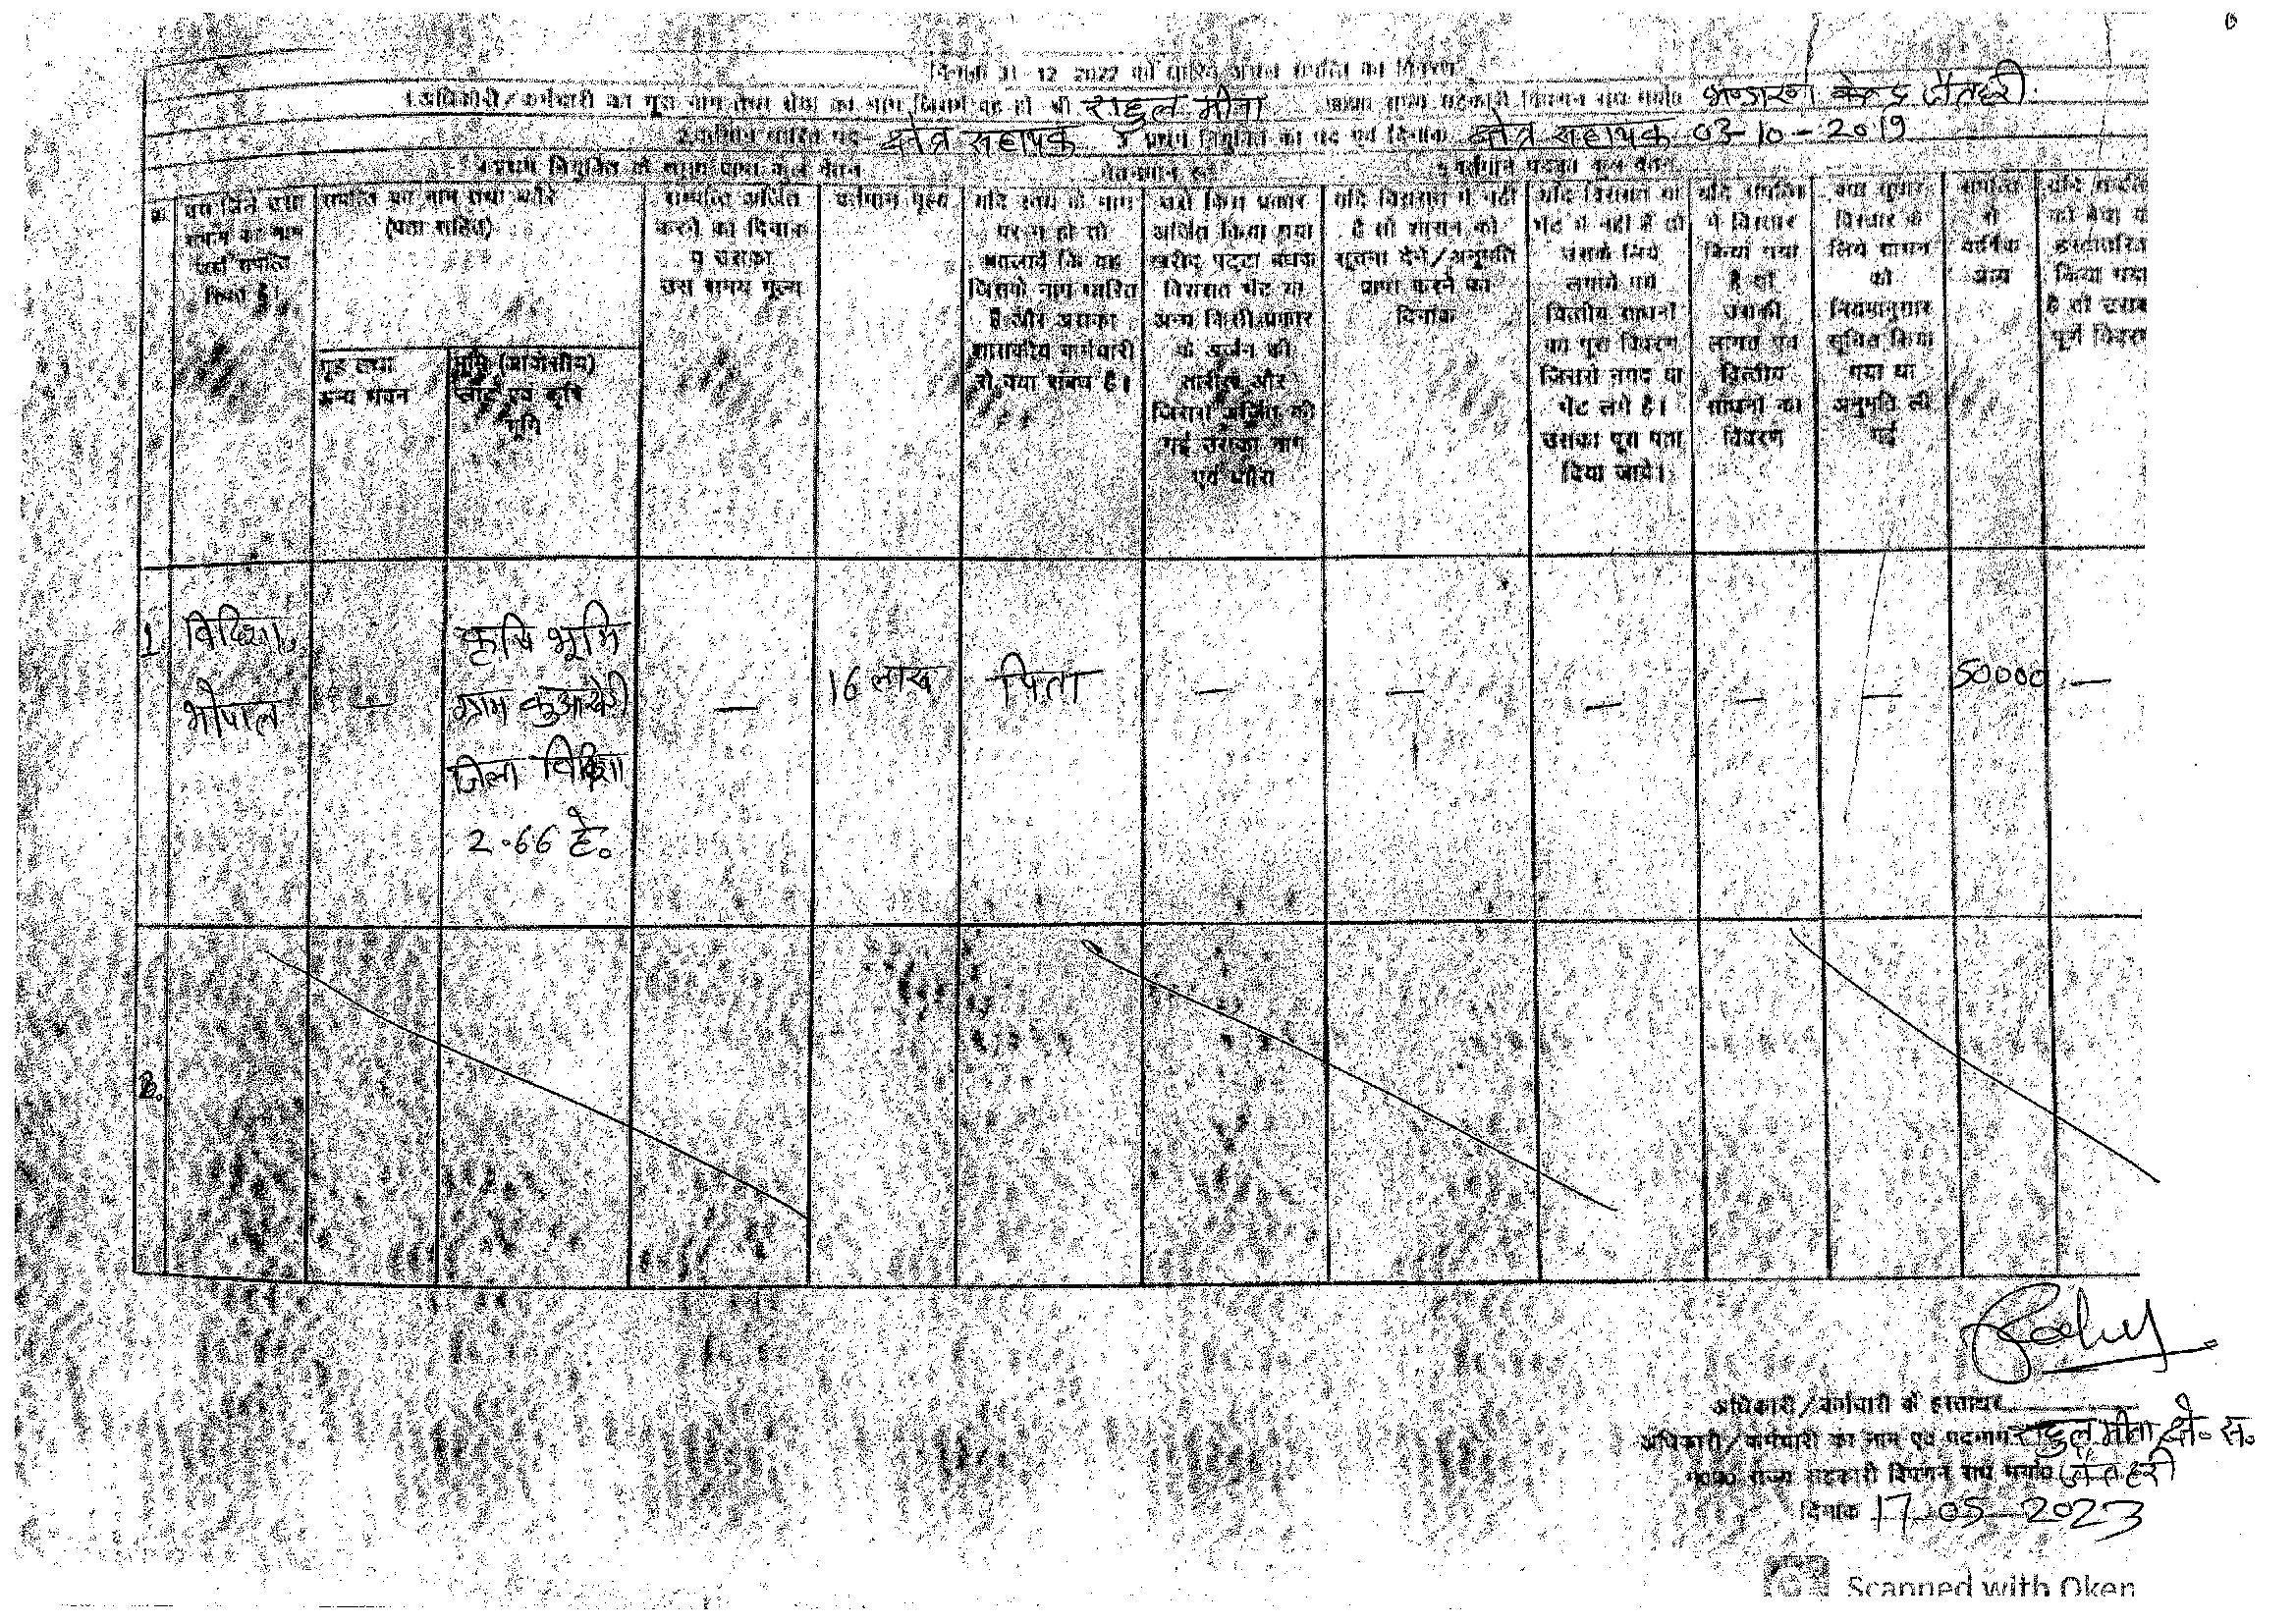 दिनांक 31-12-2022 को धारित अचल संपत्ति का विवरण
1.अधिकारी/कर्मचारी का पूरा नाम तथा सेवा का नाम जिसमें वह हो श्री राहुल मीना म0प्र0 राज्य सहकारी विपणन संघ मर्या0 केन्द्र जैतहरी
2.वर्तमान धारित पद क्षेत्र सहायक 3 प्रथम नियुक्ति का पद एवं दिनांक क्षेत्र सहायक 03-10-2019
4.प्रथम नियुक्ति के समय प्राप्त कुल वेतन वेतनमान रु0 5.वर्तमान पदका कुल वेतन
क्र.
उस जिले तथा
ग्राम का नाम
जहाँ संपत्ति
स्थित है।
सम्पत्ति का नाम तथा ब्यौरे
(पता सहित)
गृह तथा
अन्य भवन
भूमि (आवासीय)
प्लॉट एवं कृषि
भूमि
सम्पत्ति अर्जित
करने का दिनांक
व उसका
उस समय मूल्य
वर्तमान मूल्य
यदि स्वयं के नाम
पर न हो तो
बतलावें कि वह
जिसके नाम धारित
है और उसका
शासकीय कर्मचारी
से क्या संबंध है।
उसे किस प्रकार
अर्जित किया गया
खरीद पट्टा बंधक
विरासत भेंट या
अन्य किसी प्रकार
के अर्जन की
तारीख और
जिससे अर्जित की
गई उसका नाम
एवं ब्यौरा
यदि विरासत में नहीं
है तो शासन को
सूचना देने/अनुमति
प्राप्त करने का
दिनांक
यदि विरासत या
भेंट में नहीं है तो
उसके लिये
लगाये गये
वित्तीय साधनों
का पूरा विवरण
जिससे नगद या
भेंट लगे है।
उसका पूरा पता
दिया जाये।
यदि संपत्ति
में विस्तार
किया गया
है तो
उसकी
लागत एवं
वित्तीय
साधनों का
विवरण
क्या सुधार
विस्तार के
लिये शासन
को
नियमानुसार
सूचित किया
गया या
अनुमति ली
गई
सम्पत्ति
से
वार्षिक
आय
यदि संपत्ति
को बेचा
हस्तांतरित
किया गया
है तो उसका
पूर्ण विवरण
1.
विदिशा,
भोपाल
—
कृषि भूमि
ग्राम कुआखेड़ी
जिला विदिशा
2.66 हे०
—
16 लाख
पिता
—
—
—
—
—
50000
—
2.
अधिकारी/कर्मचारी के हस्ताक्षर
अधिकारी/कर्मचारी का नाम एवं पदनाम राहुल मीना क्षे० स०
म0प्र0 राज्य सहकारी विपणन संघ मर्या0 जैतहरी
दिनांक 17-05-2023
Scanned with Oken